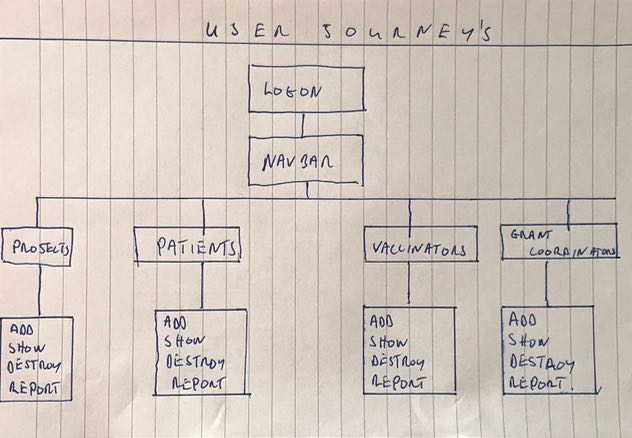 USER JOURNEY'S
LOGON
NAVBAR
PROJECTS
PATIENTS
VACCINATORS
GRANT
COORDINATORS
ADD
SHOW
DESTROY
REPORT
ADD
SHOW
DESTROY
REPORT
ADD
SHOW
DESTROY
REPORT
ADD
SHOW
DESTROY
REPORT.